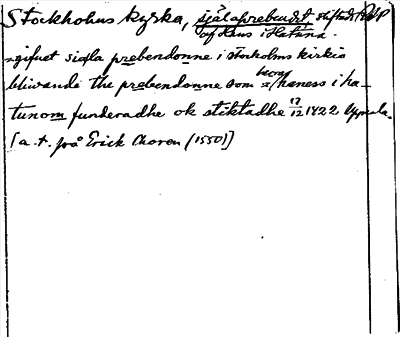 Stockholms kyrka, själaprebendet stiftadt
af Hans i Hatuna.
-gifuet siæla prebendonne i stocholms kirkio
bliwande the prebendonne som herra haness i ha-
tunom funderadhe ok stiktadhe 17/12 1422 Uppsala.
[a. t. på Erick (1550)]